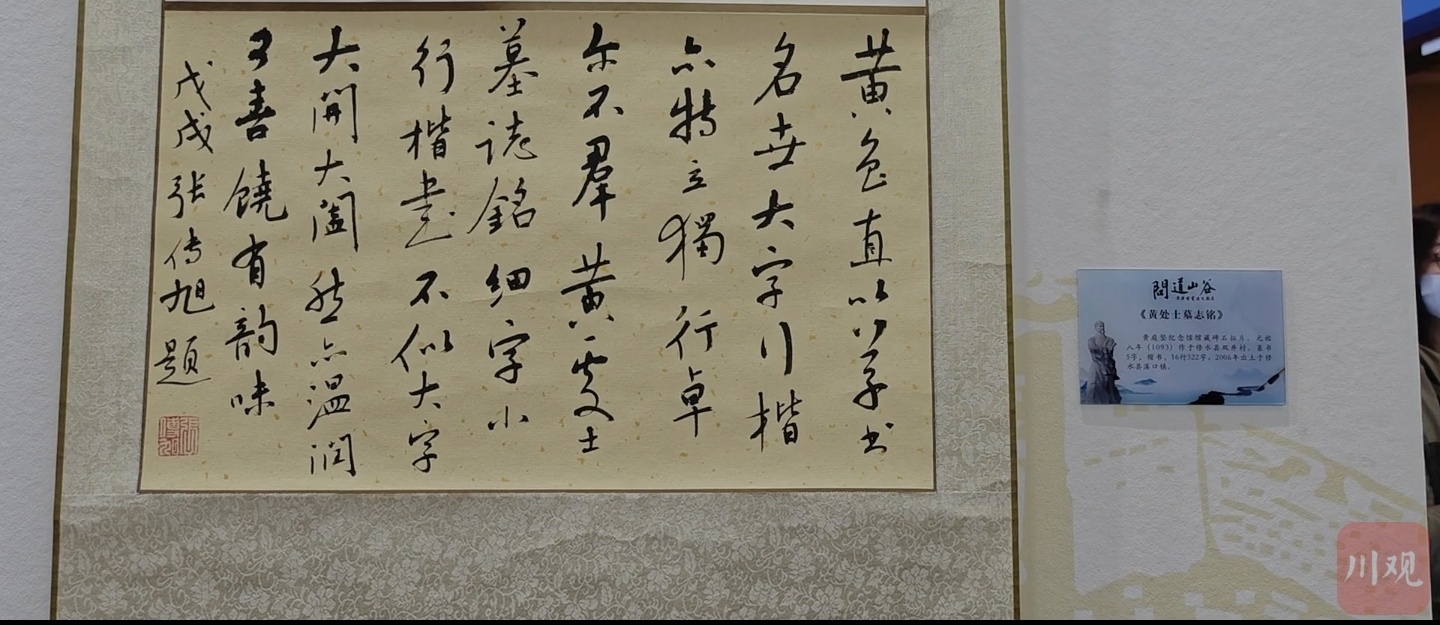 黄鲁直以草书
名世大字行楷
亦特立獨行卓
尔不羣黄處士
墓誌銘細字小
行楷書不似大字
大開大闔然亦温潤
可喜饒有韵味
戊戌张传旭題
問道山谷
《黄处士墓志铭》
黄庭坚纪念馆馆藏碑石拓片，元祐
八年（1093）作于修水县双井村，篆书
5字，楷书，16行322字，2006年出土于修
水县溪口镇。
川观